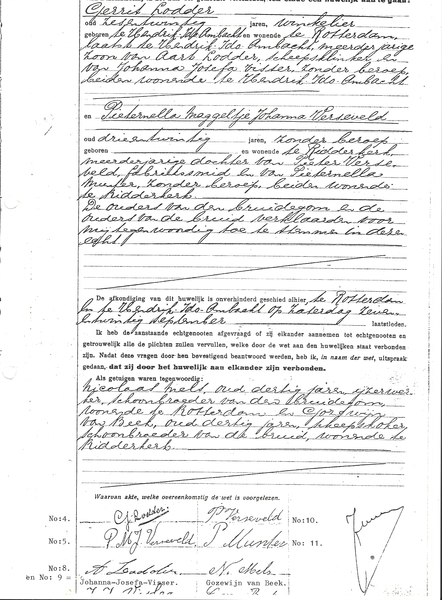 Gerrit Lodder
oud zesentwintig jaren, winkelier
geboren te Hendrik Ido Ambacht en wonende te Rotterdam,
laatst te Hendrik Ido Ambacht, meerderjarige
zoon van Aart Lodder, scheepsklinker en
van Johanna Josefa Visser, zonder beroep,
beiden wonende te Hendrik Ido Ambacht
en Pieternella Maggeltje Johanna Verseveld
oud drieentwintig jaren, zonder beroep
geboren en wonende te Ridderkerk,
meerderjarige dochter van Pieter Verse-
veld, fabrieksmid en van Pieternella
Munter, zonder beroep, beiden wonende
te Ridderkerk
De ouders van den bruidegom en de
ouders van de bruid verklaarden voor
mij tegenwoordig toe te stemmen in deze
echt
De afkondiging van dit huwelijk is onverhinderd geschied alhier, te Rotterdam
en te Hendrik Ido Ambacht op zaterdag zeven
entwintig september laatstleden.
Ik heb de aanstaande echtgenooten afgevraagd of zij elkander aannemen tot echtgenooten en
getrouwelijk alle de plichten zullen vervullen, welke door de wet aan den huwelijken staat verbonden
zijn. Nadat deze vragen door hen bevestigend beantwoord werden, heb ik, in naam der wet, uitspraak
gedaan, dat zij door het huwelijk aan elkander zijn verbonden.
Als getuigen waren tegenwoordig:
Nicolaas Mels, oud dertig jaren, ijzerwer-
ker, schoonbroeder van den bruidegom,
wonende te Rotterdam en Gozewijn
van Beek, oud dertig jaren, scheepstoker,
schoonbroeder van de bruid, wonende te
Ridderkerk
Waarvan akte, welke overeenkomstig de wet is voorgelezen.
No:4. G. Lodder P. Verseveld No:10.
No:5. P.M.J. Verseveld P. Munter No: 11.
No:8. A. Lodder N. Mels
en No: 9 = Johanna-Josefa-Visser. Gozewijn van Beek.